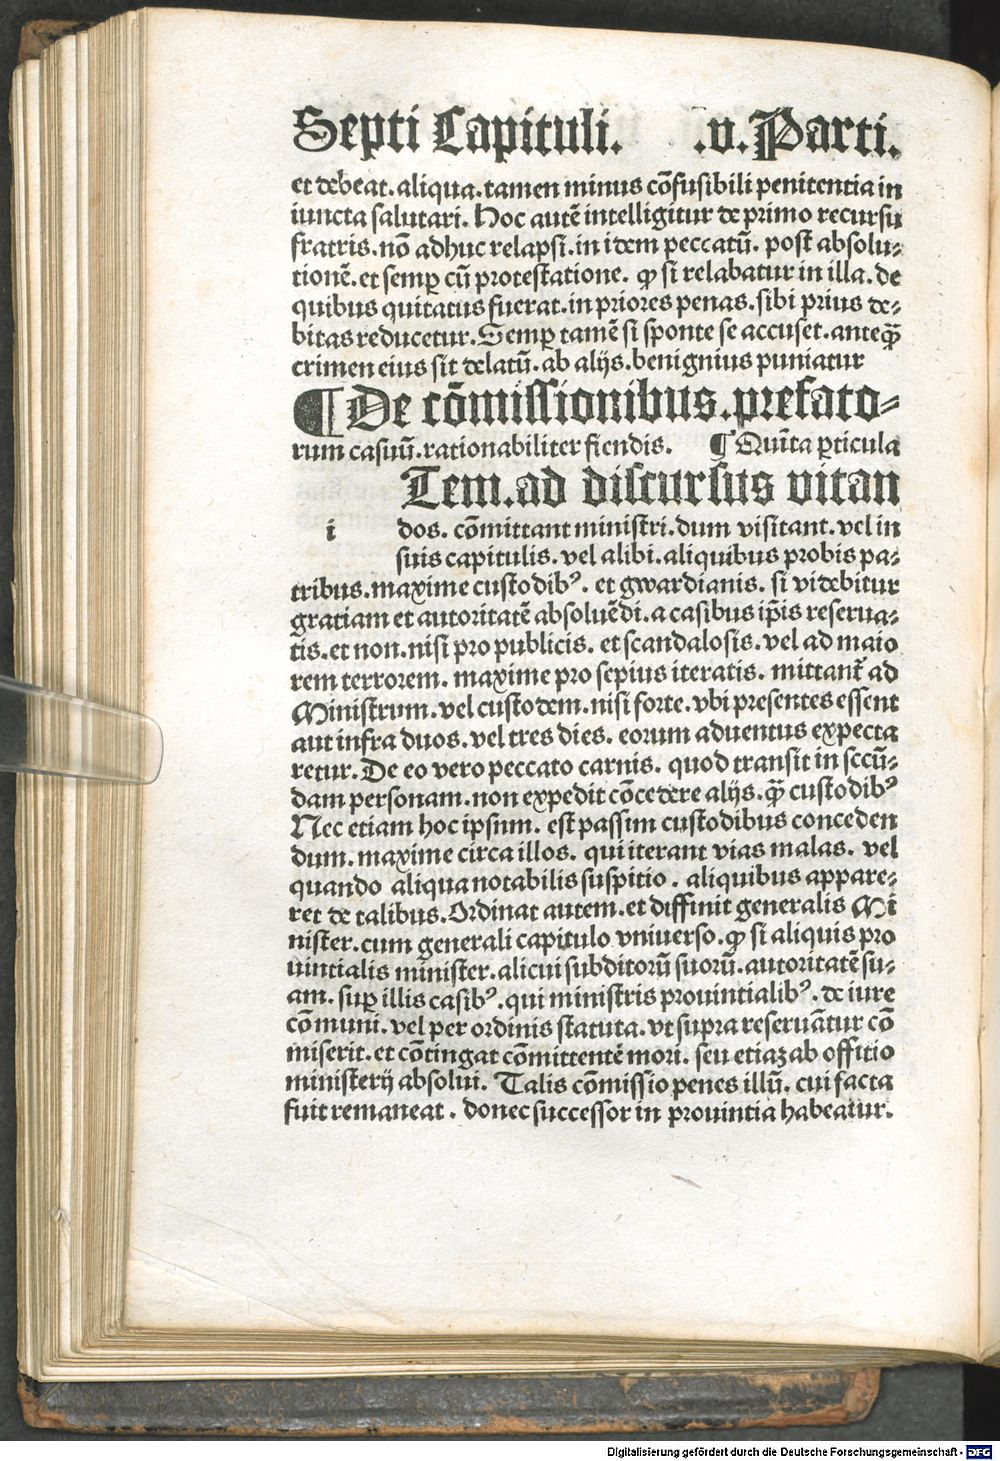 Septi Capituli. .v. Parti.
et debeat. aliqua. tamen minus cōfusibili penitentia in
iuncta salutari. Hoc autē intelligitur de primo recursu
fratris. nō adhuc relapsi. in idem peccatū. post absolu⸗
tionē. et semꝑ cū protestatione. ꝙ si relabatur in illa. de
quibus quitatus fuerat. in priores penas. sibi prius de⸗
bitas reducetur. Semꝑ tamē si sponte se accuset. anteꝙ̄
crimen eius sit delatū. ab alijs. benignius puniatur
¶ De cōmissionibus. prefato⸗
rum casuū. rationabiliter fiendis. ¶ Quīta ꝑticula
Tem. ad discursus vitan
i dos. cōmittant ministri. dum visitant. vel in
suis capitulis. vel alibi. aliquibus probis pa⸗
tribus. maxime custodibꝰ. et gwardianis. si videbitur
gratiam et autoritatē absoluēdi. a casibus ip̄is reserua⸗
tis. et non. nisi pro publicis. et scandalosis. vel ad maio
rem terrorem. maxime pro sepius iteratis. mittant᷑ ad
Ministrum. vel custodem. nisi forte. vbi presentes essent
aut infra duos. vel tres dies. eorum aduentus expecta
retur. De eo vero peccato carnis. quod transit in secū⸗
dam personam. non expedit cōcedere alijs. ꝙ̄ custodibꝰ
Nec etiam hoc ipsum. est passim custodibus conceden
dum. maxime circa illos. qui iterant vias malas. vel
quando aliqua notabilis suspitio. aliquibus appare⸗
ret de talibus. Ordinat autem. et diffinit generalis Mi
nister. cum generali capitulo vniuerso. ꝙ si aliquis pro
uintialis minister. alicui subditorū suorū. autoritatē su⸗
am. suꝑ illis casibꝰ. qui ministris prouintialibꝰ. de iure
cōmuni. vel per ordinis statuta. vt supra reseruātur cō
miserit. et cōtingat cōmittentē mori. seu etiaꝫ ab offitio
ministerij absolui. Talis cōmissio penes illū. cui facta
fuit remaneat. donec successor in prouintia habeatur.
Digitalisierung gefördert durch die Deutsche Forschungsgemeinschaft - DFG